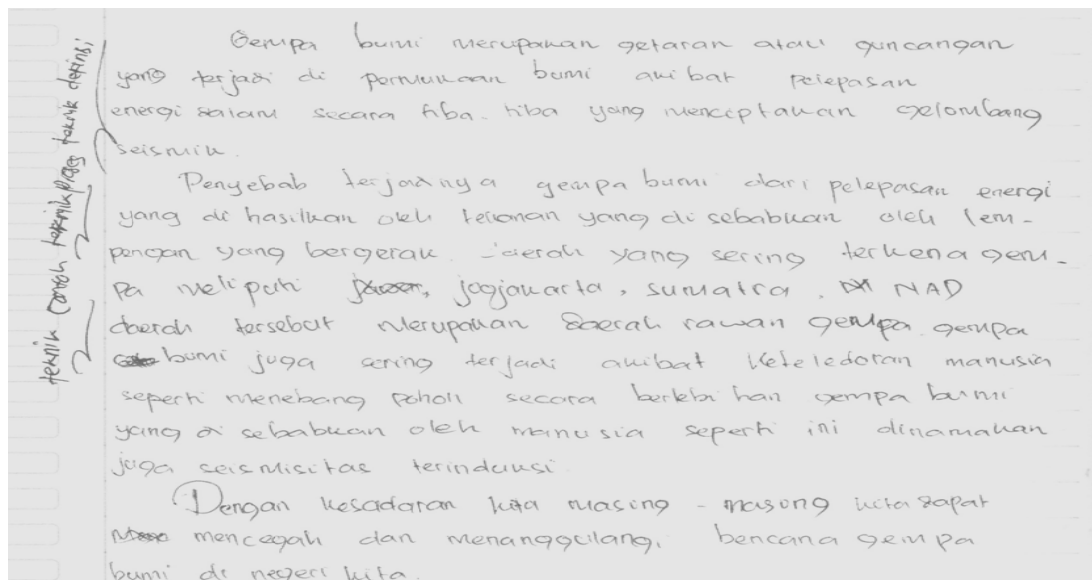 Gempa bumi merupakan getaran atau guncangan
yang terjadi di permukaan bumi akibat pelepasan
energi dalam secara tiba-tiba yang menciptakan gelombang
seismik.
Penyebab terjadinya gempa bumi dari pelepasan energi
yang di hasilkan oleh tekanan yang di sebabkan oleh lem-
pengan yang bergerak. daerah yang sering terkena gem-
pa meliputi jogjakarta, sumatra, NAD
daerah tersebut merupakan daerah rawan gempa. gempa
bumi juga sering terjadi akibat keteledoran manusia
seperti menebang pohon secara berlebihan gempa bumi
yang di sebabkan oleh manusia seperti ini dinamakan
juga seismisitas terinduksi.
Dengan kesadaran kita masing - masong kita dapat
mencegah dan menanggulangi bencana gempa
bumi di negeri kita.
teknik contoh teknik proses teknik definisi